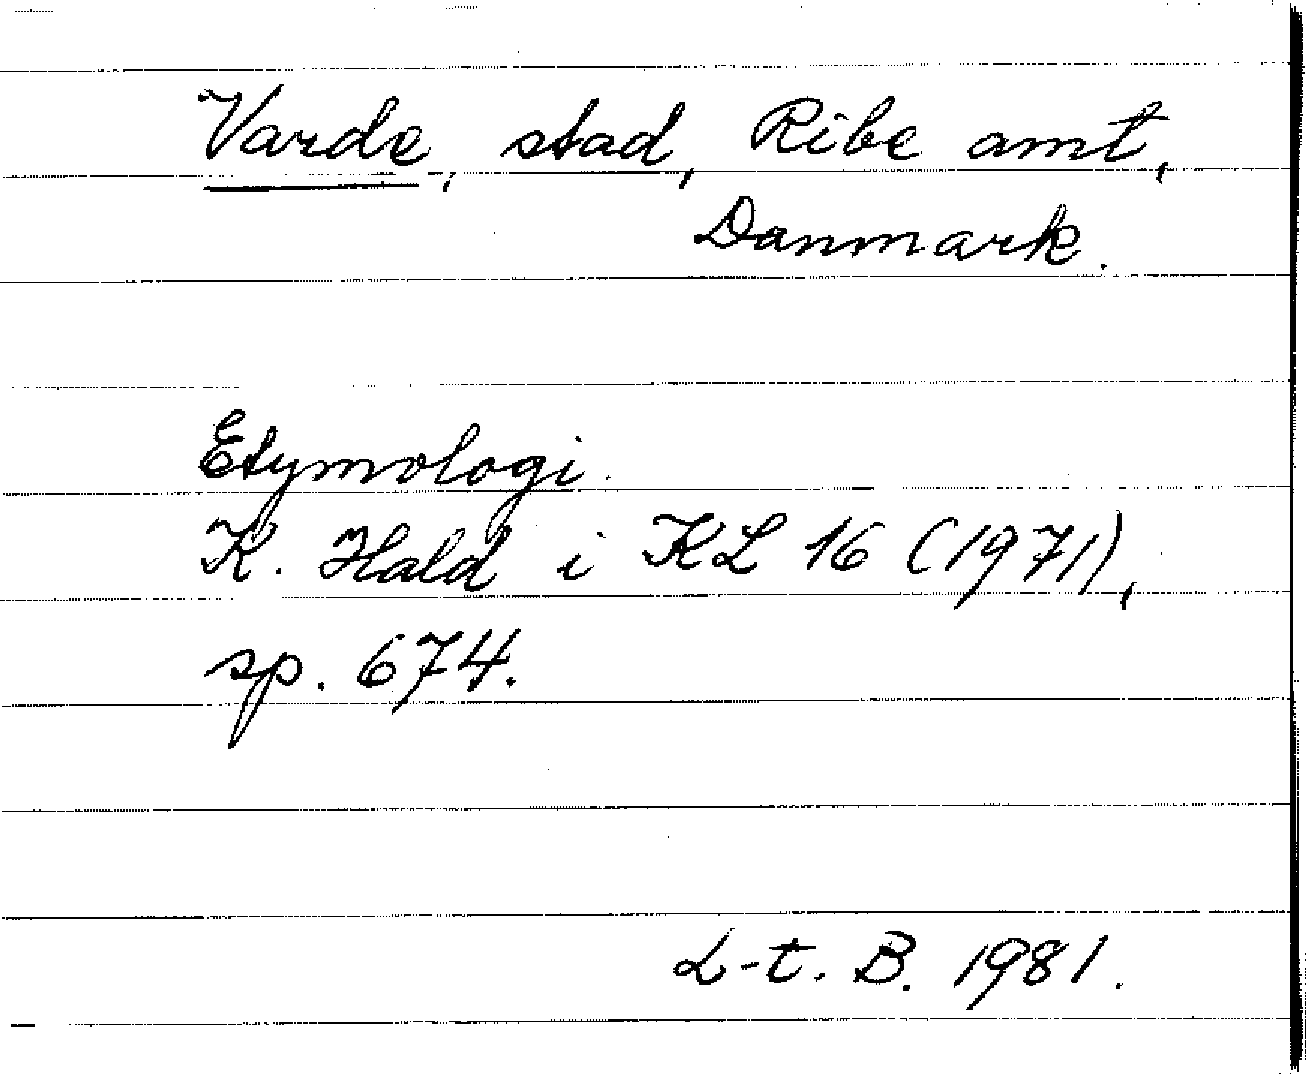 Varde, stad, Ribe amt,
Danmark.
Etymologi.
K. Hald i KL 16 (1971),
sp. 674.
L-t. B. 1981.